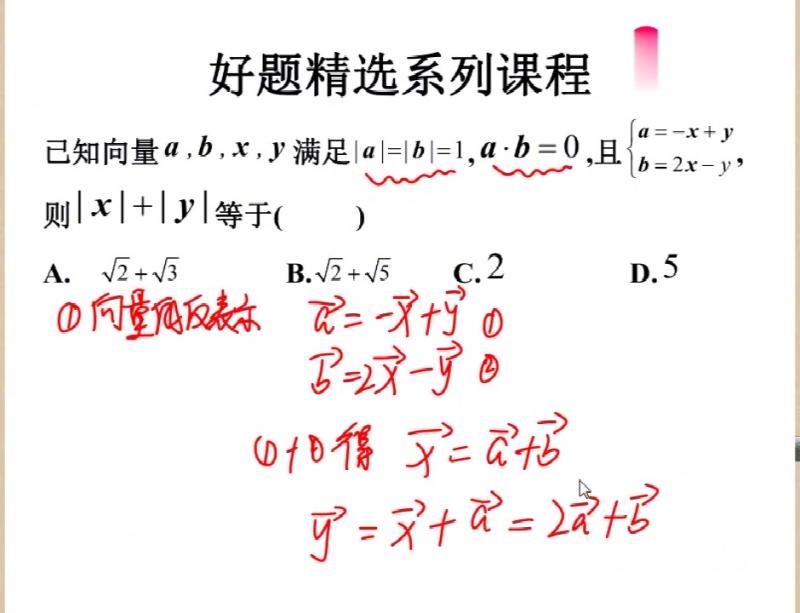 好题精选系列课程
已知向量a,b,x,y满足|a|=|b|=1,a·b=0,且{a=-x+y
b=2x-y,
则|x|+|y|等于( )
A. √2+√3 B.√2+√5 C.2 D.5
①向量反表示 a⃗=-x⃗+y⃗ ①
b⃗=2x⃗-y⃗ ②
①+②得 x⃗=a⃗+b⃗
y⃗=x⃗+a⃗=2a⃗+b⃗